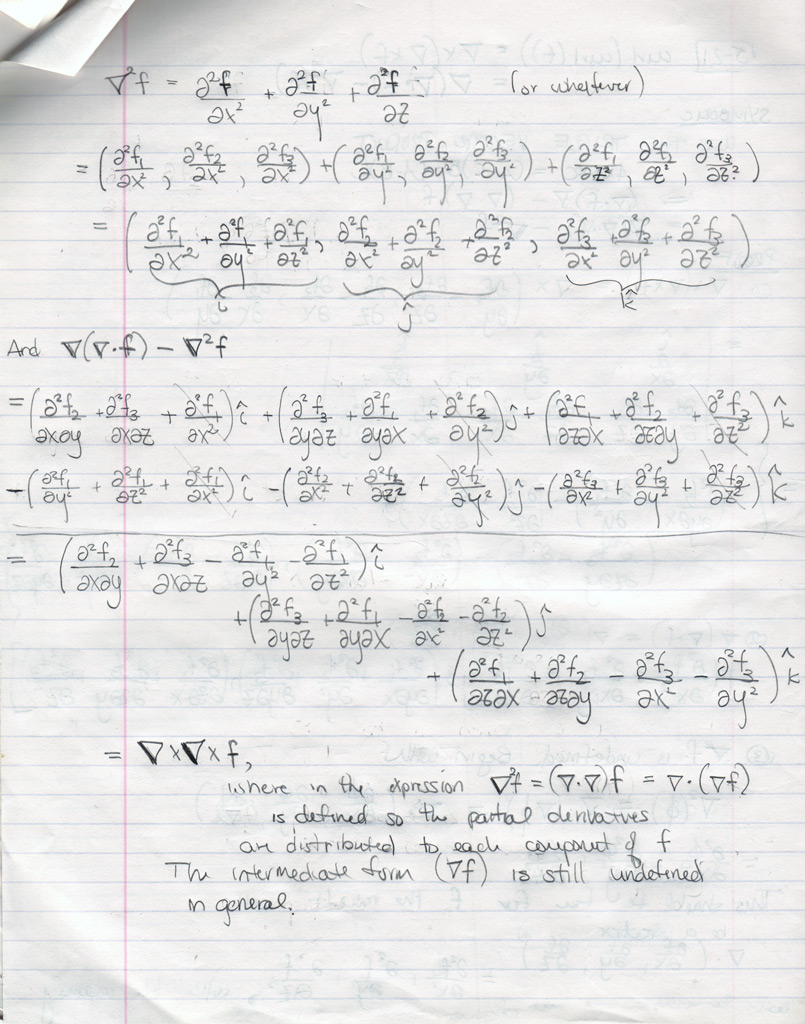 ∇²f = ∂²f/∂x² + ∂²f/∂y² + ∂²f/∂z (or whatever)
= (∂²f₁/∂x², ∂²f₂/∂x², ∂²f₃/∂x²) + (∂²f₁/∂y², ∂²f₂/∂y², ∂²f₃/∂y²) + (∂²f₁/∂z², ∂²f₂/∂z², ∂²f₃/∂z²)
= (∂²f₁/∂x² + ∂²f₁/∂y² + ∂²f₁/∂z², ∂²f₂/∂x² + ∂²f₂/∂y² + ∂²f₂/∂z², ∂²f₃/∂x² + ∂²f₃/∂y² + ∂²f₃/∂z²)
î ĵ k̂
And ∇(∇·f) − ∇²f
= (∂²f₂/∂x∂y + ∂²f₃/∂x∂z + ∂²f₁/∂x²) î + (∂²f₃/∂y∂z + ∂²f₁/∂y∂x + ∂²f₂/∂y²) ĵ + (∂²f₁/∂z∂x + ∂²f₂/∂z∂y + ∂²f₃/∂z²) k̂
− (∂²f₁/∂y² + ∂²f₁/∂z² + ∂²f₁/∂x²) î − (∂²f₂/∂x² + ∂²f₂/∂z² + ∂²f₂/∂y²) ĵ − (∂²f₃/∂x² + ∂²f₃/∂y² + ∂²f₃/∂z²) k̂
= (∂²f₂/∂x∂y + ∂²f₃/∂x∂z − ∂²f₁/∂y² − ∂²f₁/∂z²) î
+ (∂²f₃/∂y∂z + ∂²f₁/∂y∂x − ∂²f₂/∂x² − ∂²f₂/∂z²) ĵ
+ (∂²f₁/∂z∂x + ∂²f₂/∂z∂y − ∂²f₃/∂x² − ∂²f₃/∂y²) k̂
= ∇×∇×f,
where in the expression ∇²f = (∇·∇)f = ∇·(∇f)
is defined so the partial derivatives
are distributed to each component of f
The intermediate form (∇f) is still undefined
in general.